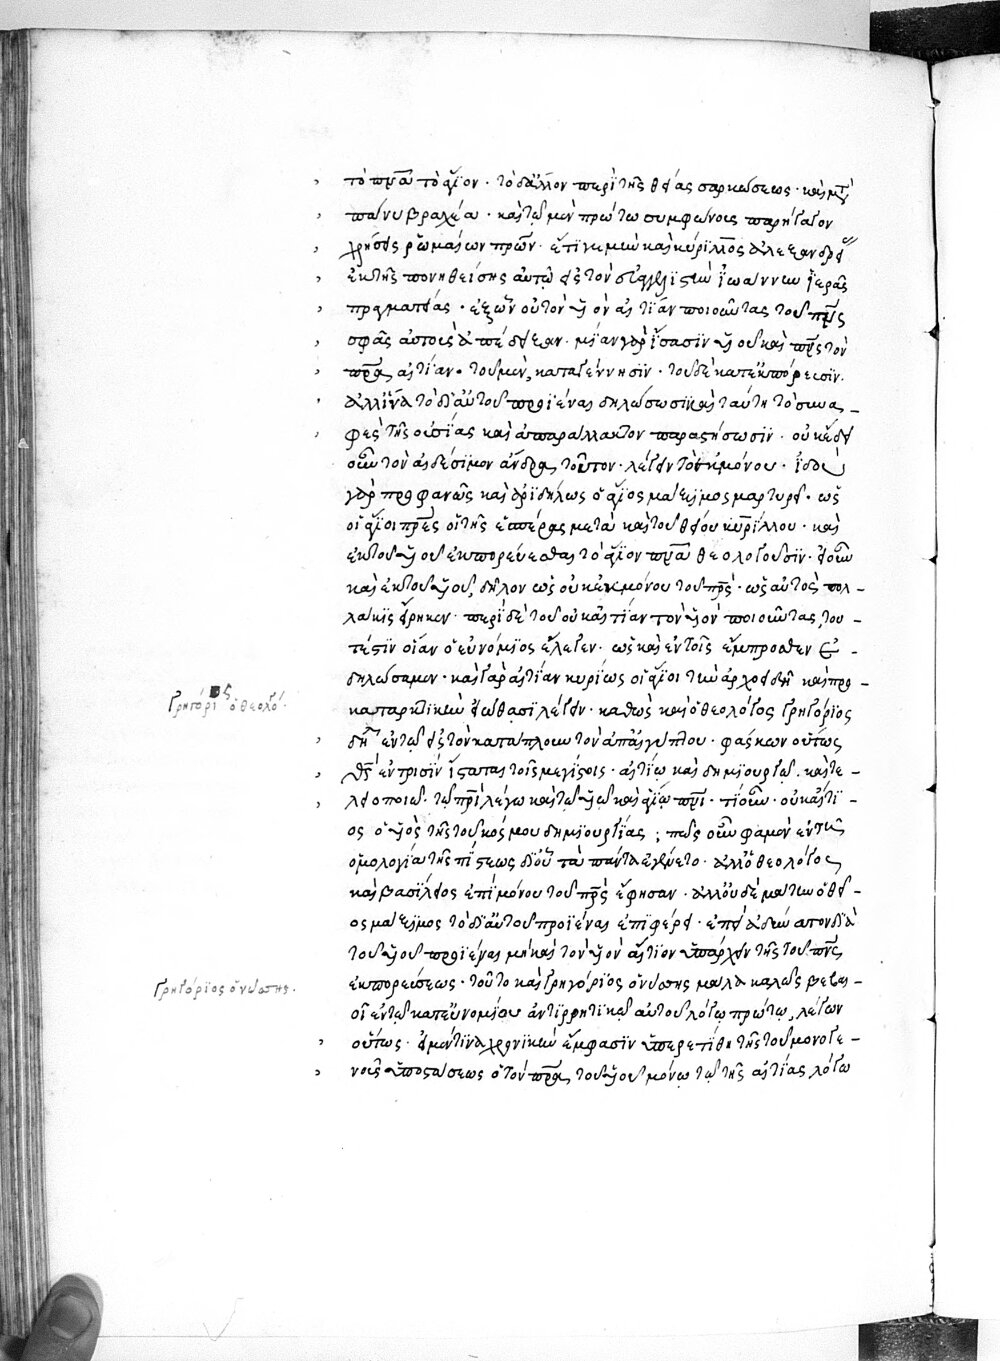 τὸ πνᾶ τὸ ἅγιον· τὸ δ' ἄλλον περὶ τῆς θείας σαρκώσεως· καὶ
πάνυ βραχέα· καὶ τῷ μὲν πρώτω συμφώνους παρήγαγον
χρήσεις ῥωμαίων πρῶν· ἔτι γε μὴν καὶ κυρίλλου ἀλεξανδρεί
ἐκ τῆς πονηθείσης αὐτῷ εἰς τὸν εὐαγγελιστὴν ἰωάννην ἱερᾶς
πραγματείας· ἐξ ὧν οὐ τὸν υἱὸν αἰτίαν ποιοῦντας τοῦ πνς
σφᾶς αὐτοὺς ἀπέδειξαν· μίαν γὰρ ἴσασιν υἱοῦ καὶ πνς τὸν
πρα αἰτίαν· τοῦ μὲν, κατὰ γέννησιν· τοῦ δὲ κατ' ἐκπόρευσιν·
ἀλλ' ἵνα τὸ δι' αὐτοῦ προϊέναι δηλώσωσιν καὶ ταύτη τὸ συνα-
φὲς τῆς οὐσίας καὶ ἀπαράλλακτον παραστήσωσιν· οὐκ ἔδει
οὖν τὸν αἰδέσιμον ἄνδρα τοῦτον· λέγειν τὸ ἐκ μόνου· ἰδοὺ
γὰρ προφανῶς καὶ ἀριδήλως ὁ ἅγιος μάξιμος μαρτυρεῖ· ὡς
οἱ ἅγιοι πρες οἱ τῆς ἑσπέρας μετὰ καὶ τοῦ θείου κυρίλλου· καὶ
ἐκ τοῦ υἱοῦ ἐκπορεύεσθαι τὸ ἅγιον πνα θεολογοῦσιν· εἰ οὖν
καὶ ἐκ τοῦ υἱοῦ, δῆλον ὡς οὐκ ἐκ μόνου τοῦ πρς· ὡς αὐτὸς πολ-
λάκις εἴρηκεν· περὶ δὲ τοῦ οὐκ αἰτίαν τὸν υἱὸν ποιοῦντας, του-
τέστιν οἵαν ὁ εὐνόμιος ἔλεγεν· ὡς καὶ ἐν τοῖς ἔμπροσθεν ἐ-
δηλώσαμεν· καὶ γὰρ αἰτίαν κυρίως οἱ ἅγιοι τὴν ἀρχοειδῆ καὶ προ-
καταρκτικὴν εἰώθασι λέγειν· καθὼς καὶ ὁ θεολόγος γρηγόριος
Γρηγόριος ὁ θεολό·
δῆ ἐν τῷ εἰς τὸν κατάπλουν τὸν ἀπ' αἰγύπτου· φάσκων οὕτως
θς ἐν τρισὶν ἵσταται τοῖς μεγίστοις· αἰτίῳ καὶ δημιουργῷ, καὶ τε-
λειοποιῷ· τῷ πρὶ λέγω καὶ τῷ υἱῷ καὶ ἁγίῳ πνι· τί οὖν· οὐκ αἴτι-
ος ὁ υἱὸς τῆς τοῦ κόσμου δημιουργίας; πῶς οὖν φαμὲν ἐν τῇ
ὁμολογία τῆς πίστεως δι' οὗ τὰ πάντα ἐγένετο· ἀλλ' ὁ θεολόγος
καὶ βασίλειος ἐπὶ μόνου τοῦ πρς ἔφησαν· ἀλλ' οὐδὲ μάτην ὁ θεῖ-
ος μάξιμος τὸ δι' αὐτοῦ προϊέναι ἐπιφέρει· ἐπεὶ ἀδεὲς ἀπὸν διὰ
τοῦ υἱοῦ προϊέναι μὴ καὶ τὸν υἱὸν αἴτιον ὑπάρχειν τῆς τοῦ πνς
ἐκπορεύσεως· τοῦτο καὶ γρηγόριος ὁ νύσσης μάλα καλῶς βεβαι-
Γρηγόριος ὁ νύσσης·
οῖ ἐν τῷ κατ' εὐνομίου ἀντιρρητικῷ αὐτοῦ λόγῳ πρώτῳ, λέγων
οὕτως· εἰ μή τινα χρονικὴν ἔμφασιν ὑπερετίθη τῆς τοῦ μονογε-
νοῦς ὑποστάσεως ὁ τὸν πρα τοῦ υἱοῦ μόνῳ τῷ τῆς αἰτίας λόγω